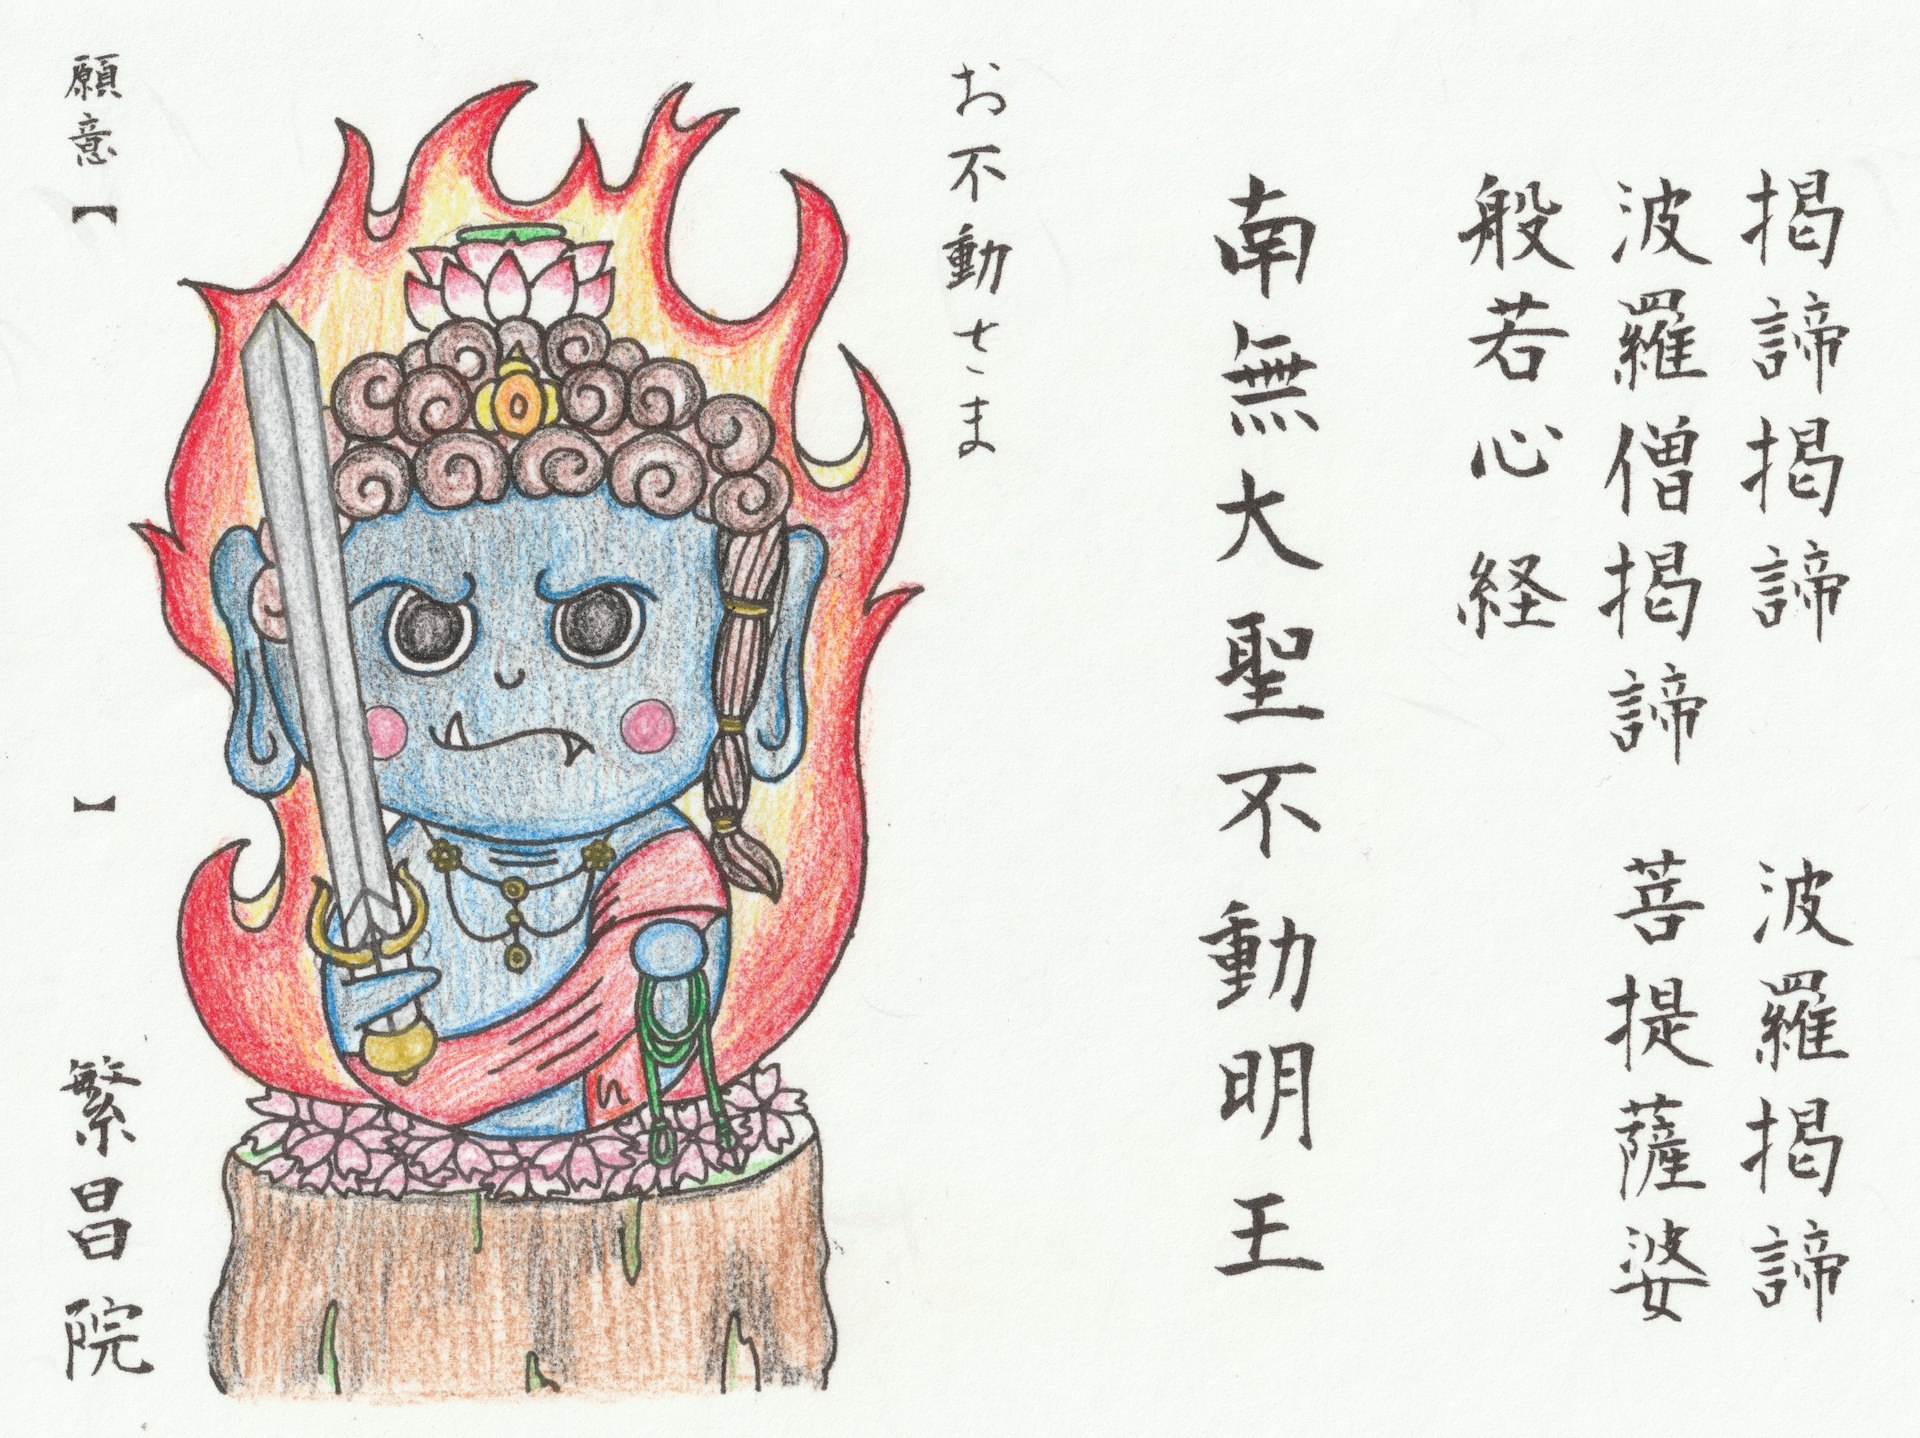 掲諦掲諦 波羅掲諦
波羅僧掲諦 菩提薩婆
般若心経
南無大聖不動明王
お不動さま
願意【 】
繁昌院